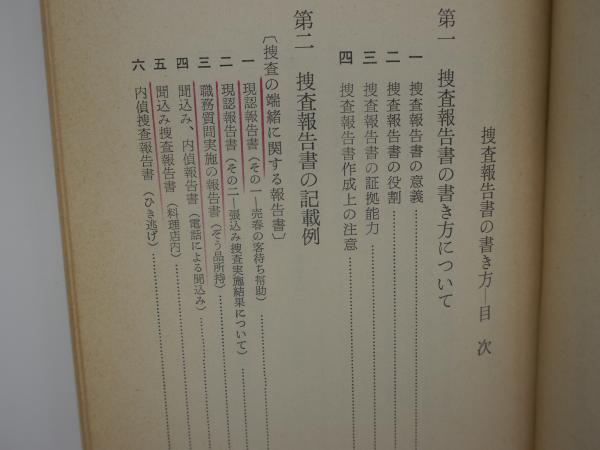 捜査報告書の書き方―目次
第一 捜査報告書の書き方について
一 捜査報告書の意義
二 捜査報告書の役割
三 捜査報告書の証拠能力
四 捜査報告書作成上の注意
第二 捜査報告書の記載例
〔捜査の端緒に関する報告書〕
一 現認報告書(その一―売春の客待ち幇助)
二 現認報告書(その二―張込み捜査実施結果について)
三 職務質問実施の報告書(ぞう品所持)
四 聞込み、内偵報告書(電話による聞込み)
五 聞込み捜査報告書(料理店内)
六 内偵捜査報告書(ひき逃げ)